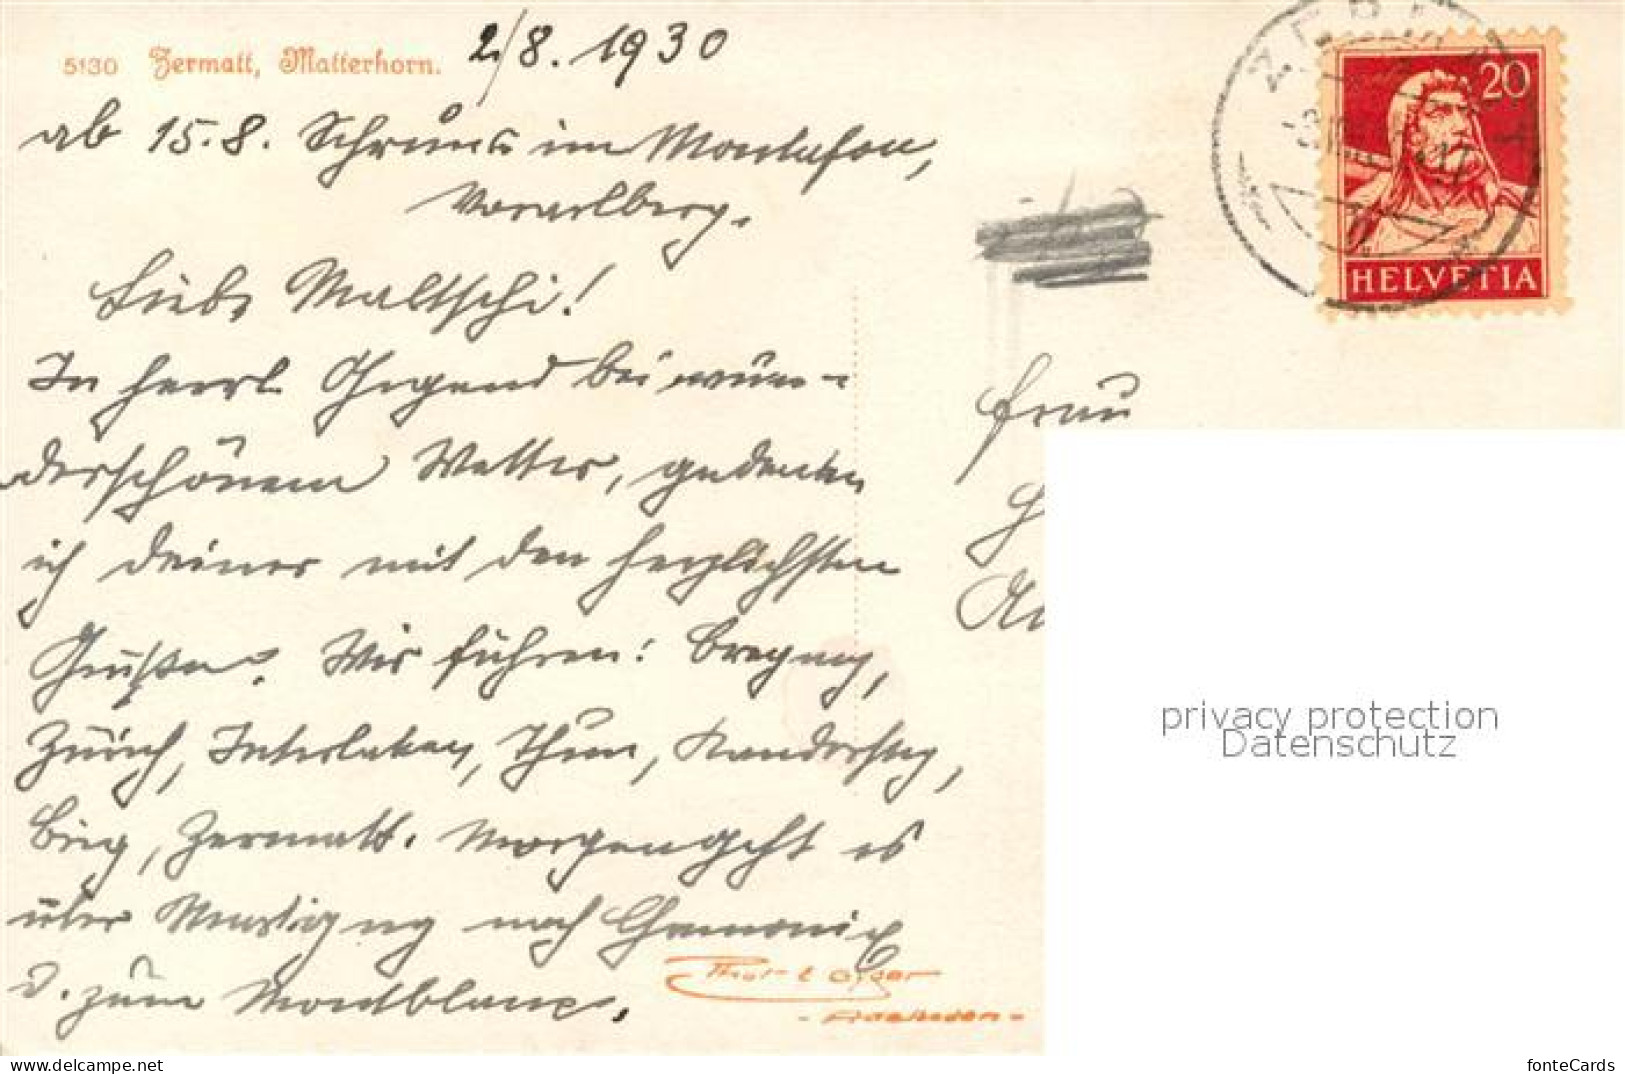 5130 Zermatt, Matterhorn.
2/8. 1930
ab 15.8. Schruns im Montafon,
Vorarlberg.
Liebe Maltschi!
In herrl. Gegend bei wun-
derschönem Wetter, gedenken
ich Deiner mit den herzlichsten
Grüßen. Wir fuhren: Bregenz,
Zürich, Interlaken, Thun, Kandersteg,
Brig, Zermatt. Morgen geht es
über Martigny nach Chamonix
d. zum Montblanc.
Frau
HELVETIA
20
privacy protection
Datenschutz
fonteCards
https://www.ansichtskarten-center.de/